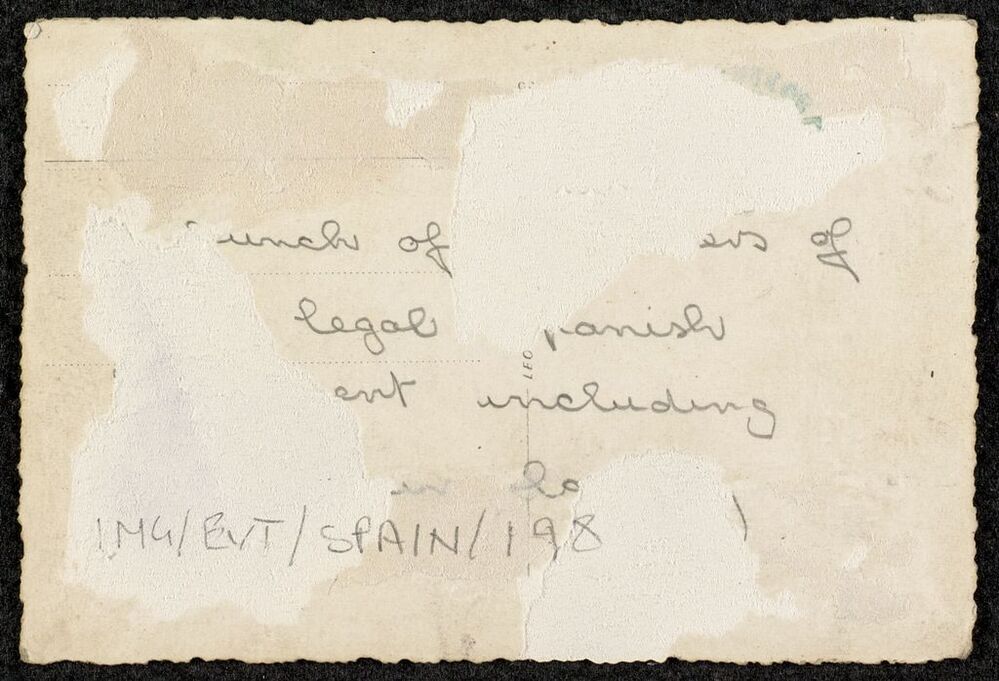 unch of ers of
legal panish
ent including
IMG/EVT/SPAIN/198 )
LEO